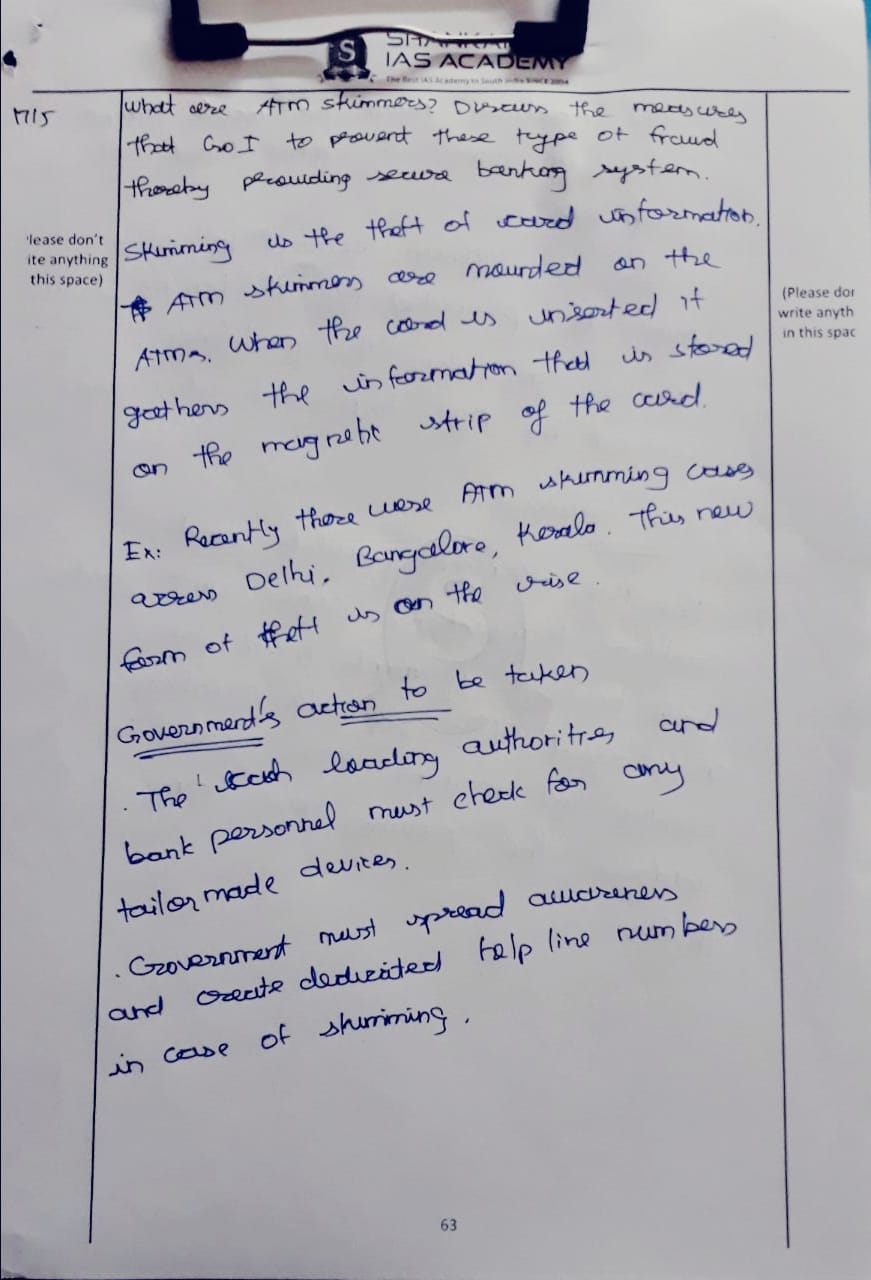 SHANKAR
IAS ACADEMY
The Best IAS Academy in South India SINCE 2004
M15
What are ATM skimmers? Discuss the measures
that GoI to prevent these type of fraud
thereby providing secure banking system.
Skimming is the theft of card information.
ATM skimmers are mounded on the
ATMs. When the card is inserted it
gathers the information that is stored
on the magnetic strip of the card.
Ex: Recently there were ATM skimming cases
across Delhi, Bangalore, Kerala. This new
form of theft is on the rise.
Government's action to be taken
. The cash loading authorities and
bank personnel must check for any
tailor made devices.
. Government must spread awareness
and create dedicated help line numbers
in case of skimming.
lease don't
ite anything
this space)
(Please don
write anyth
in this spac
63